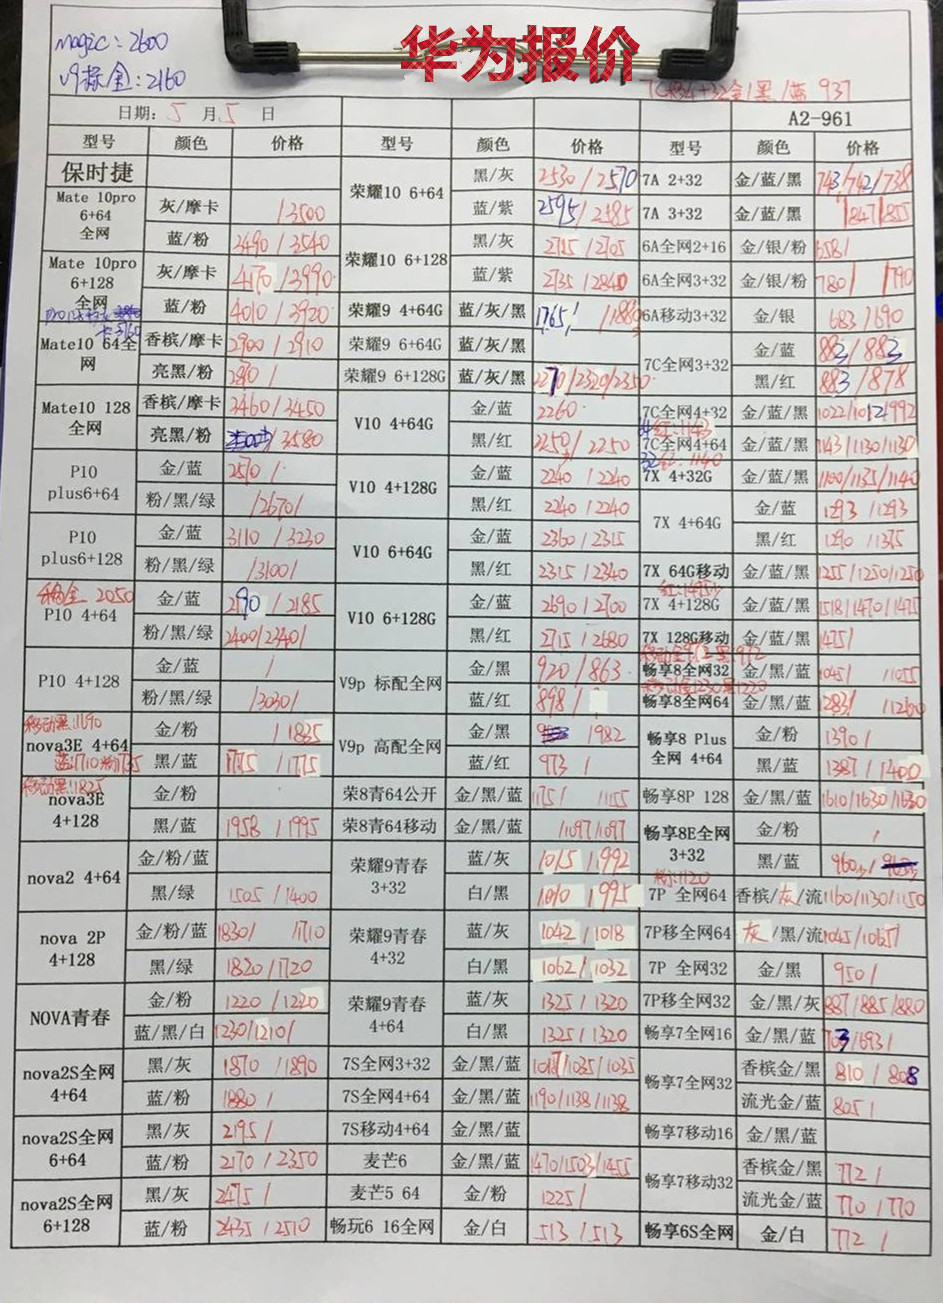 华为报价
magic: 2600
v9标金: 2160
7C标4+32金/黑/蓝 937
日期: 5 月 5 日 A2-961
型号 颜色 价格 型号 颜色 价格 型号 颜色 价格
保时捷 荣耀10 6+64 黑/灰 2530/2570 7A 2+32 金/蓝/黑 743/742/738
Mate 10pro 6+64 全网 灰/摩卡 /3500 蓝/紫 2595/2585 7A 3+32 金/蓝/黑 /847/855
蓝/粉 3490/3540 荣耀10 6+128 黑/灰 2715/2705 6A全网2+16 金/银/粉 658/
Mate 10pro 6+128 全网 灰/摩卡 4170/3990 蓝/紫 2735/2840 6A全网3+32 金/银/粉 780/ /790
蓝/粉 4010/3920 荣耀9 4+64G 蓝/灰/黑 1765/ /1880 6A移动3+32 金/银 683/690
Mate10 64全网 香槟/摩卡 2900/2910 荣耀9 6+64G 蓝/灰/黑 7C全网3+32 金/蓝 883/883
亮黑/粉 2810/ 荣耀9 6+128G 蓝/灰/黑 2270/2320/2350 黑/红 883/878
Mate10 128 全网 香槟/摩卡 3460/3450 V10 4+64G 金/蓝 2260 7C全网4+32 金/蓝/黑 1022/1012/992
红:1143
亮黑/粉 /3580 黑/红 2250/2250 7C全网4+64 金/蓝/黑 1143/1130/1130
P10 plus6+64 金/蓝 2510/ V10 4+128G 金/蓝 2240/2240 7X 4+32G 金/蓝/黑 1100/1135/1140
粉/黑/绿 /2670/ 黑/红 2240/2240 7X 4+64G 金/蓝 1293/1293
P10 plus6+128 金/蓝 3110/3230 V10 6+64G 金/蓝 2360/2315 黑/红 1290/1375
粉/黑/绿 /3100/ 黑/红 2315/2340 7X 64G移动 金/蓝/黑 1255/1250/1250
2050
P10 4+64 金/蓝 2190/2185 V10 6+128G 金/蓝 2690/2700 7X 4+128G 金/蓝/黑 1518/1470/1475
粉/黑/绿 2400/2340/ 黑/红 2715/2680 7X 128G移动 金/蓝/黑 1475/
P10 4+128 金/蓝 / V9p 标配全网 金/黑 920/863 畅享8全网32 金/黑/蓝 1045/ /1055
粉/黑/绿 /3030/ 蓝/红 898/ 畅享8全网64 金/黑/蓝 1283/ /1260
移动黑:1690
nova3E 4+64 金/粉 /1825 V9p 高配全网 金/黑 /982 畅享8 Plus 全网 4+64 金/粉 1390/
蓝:1710 粉1735
黑/蓝 1775/1775 蓝/红 973/ 黑/蓝 1387/1400
移动黑:1825
nova3E 4+128 金/粉 荣8青64公开 金/黑/蓝 1151/ 1155 畅享8P 128 金/黑/蓝 1610/1630/1630
黑/蓝 1958/1995 荣8青64移动 金/黑/蓝 /1097/1097 畅享8E全网 3+32 金/粉 /
nova2 4+64 金/粉/蓝 荣耀9青春 3+32 蓝/灰 1015/992 黑/蓝 960/
粉:1120
黑/绿 1505/1400 白/黑 1010/995 7P 全网64 香槟/灰/流 1160/1130/1150
nova 2P 4+128 金/粉/蓝 1830/ 1710 荣耀9青春 4+32 蓝/灰 1042/1018 7P移全网64 灰/黑/流 1045/1065/
黑/绿 1820/1720 白/黑 1062/1032 7P 全网32 金/黑 950/
NOVA青春 金/粉 1220/1220 荣耀9青春 4+64 蓝/灰 1325/1320 7P移全网32 金/黑/灰 887/885/880
蓝/黑/白 1230/1210/ 白/黑 1325/1320 畅享7全网16 金/黑/蓝 703/693/
nova2S全网 4+64 黑/灰 1870/1890 7S全网3+32 金/黑/蓝 1017/1035/1035 畅享7全网32 香槟金/黑 810/808
蓝/粉 1880/ 7S全网4+64 金/黑/蓝 1190/1138/1138 流光金/蓝 805/
nova2S全网 6+64 黑/灰 2195/ 7S移动4+64 金/黑/蓝 畅享7移动16 金/黑/蓝
蓝/粉 2170/2350 麦芒6 金/黑/蓝 1470/1503/1455 畅享7移动32 香槟金/黑 772/
nova2S全网 6+128 黑/灰 2475/ 麦芒5 64 金/粉 1225/ 流光金/蓝 770/770
蓝/粉 2435/2510 畅玩6 16全网 金/白 513/513 畅享6S全网 金/白 772/